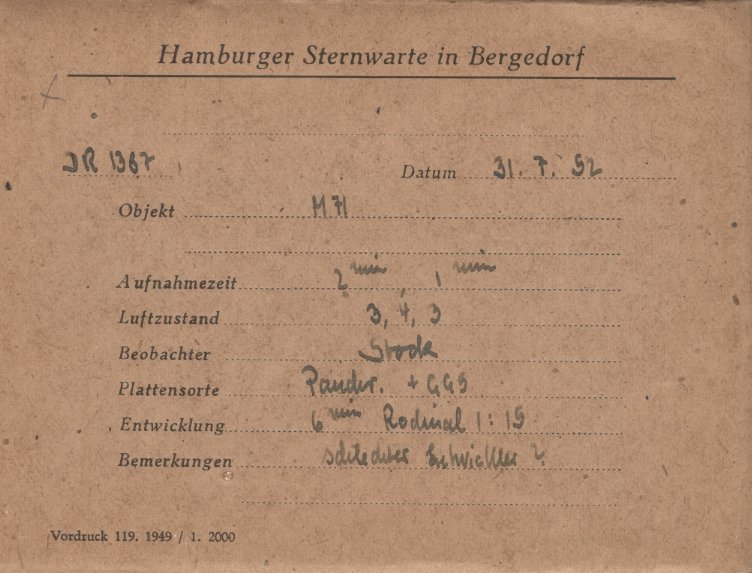 Hamburger Sternwarte in Bergedorf
DR 1367 Datum 31. 7. 52
Objekt M 71
Aufnahmezeit 2 min, 1 min
Luftzustand 3, 4, 3
Beobachter Stock
Plattensorte Panchr. + GG5
Entwicklung 6 min Rodinal 1:15
Bemerkungen schlechter Entwickler ?
Vordruck 119. 1949 / 1. 2000